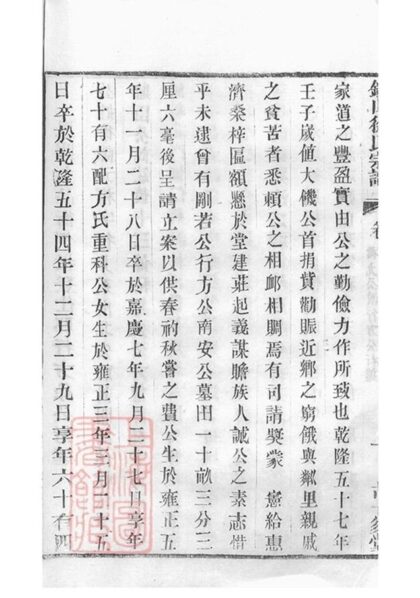 徐氏宗譜 卷
家道之豐盈實由公之勤儉力作所致也乾隆五十七年
壬子歲值大饑公首捐貲勸賑近鄉之窮餓與鄰里親戚
之貧苦者悉賴公之相卹相賙焉有司請奬蒙 憲給惠
濟桑梓匾額懸於堂建莊起義謀贍族人誠公之素志惜
乎未逮曾有剛若公行方公南安公墓田一十畝三分三
厘六毫後呈請立案以供春礿秋嘗之費公生於雍正五
年十一月二十八日卒於嘉慶七年九月二十七日享年
七十有六配方氏重科公女生於雍正三年三月十五
日卒於乾隆五十四年十二月二十九日享年六十有四